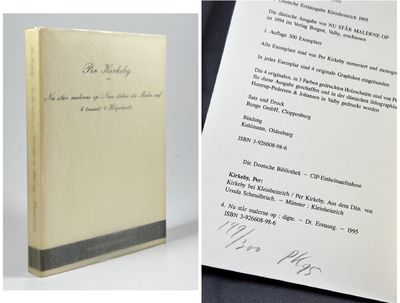 Per Kirkeby
Nu står malerne op / Nun stehen die Maler auf
Deutsche Erstausgabe Kleinheinrich 1995
Die dänische Ausgabe von NU STÅR MALERNE OP
ist 1994 im Verlag Borgen, Valby, erschienen
1. Auflage 300 Exemplare
Alle Exemplare sind von Per Kirkeby numeriert und monogr
In jedes Exemplar sind 4 originale Graphiken eingebunden
Die 4 originalen, in 3 Farben gedruckten Holzschnitte sind von Per
für diese Ausgabe geschaffen und in der dänischen lithographis
Hostrup-Pedersen & Johansen in Valby gedruckt worden
Satz und Druck
Runge GmbH, Cloppenburg
Bindung
Kuhlmann, Oldenburg
ISBN 3-926608-98-6
Die Deutsche Bibliothek – CIP-Einheitsaufnahme
Kirkeby, Per:
Kirkeby bei Kleinheinrich / Per Kirkeby. Aus dem Dän. von
Ursula Schmalbruch. – Münster : Kleinheinrich
4. Nu står malerne op : digte. – Dt. Erstausg. – 1995
ISBN 3-926608-98-6
149/300 PK95